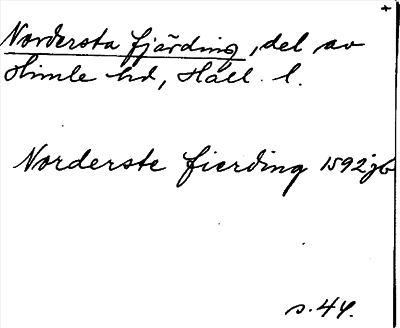 +
Nordersta fjärding, del av
Himle hd, Hall. l.
Norderste fierding 1592 jb
s. 44.